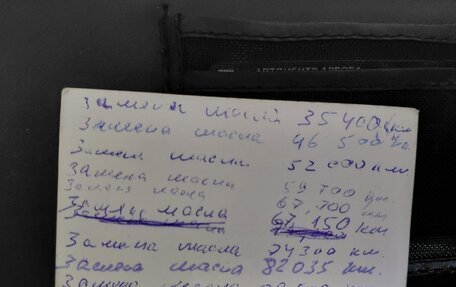 Замена масла 35400 км
Замена масла 46 500 км
Замена масла 52 000 км.
Замена масла 59 700 км.
Замена масла 67,700 км
Замена масла 67 150 км
Замена масла 74300 км.
Замена масла 82035 км.
Замена масла